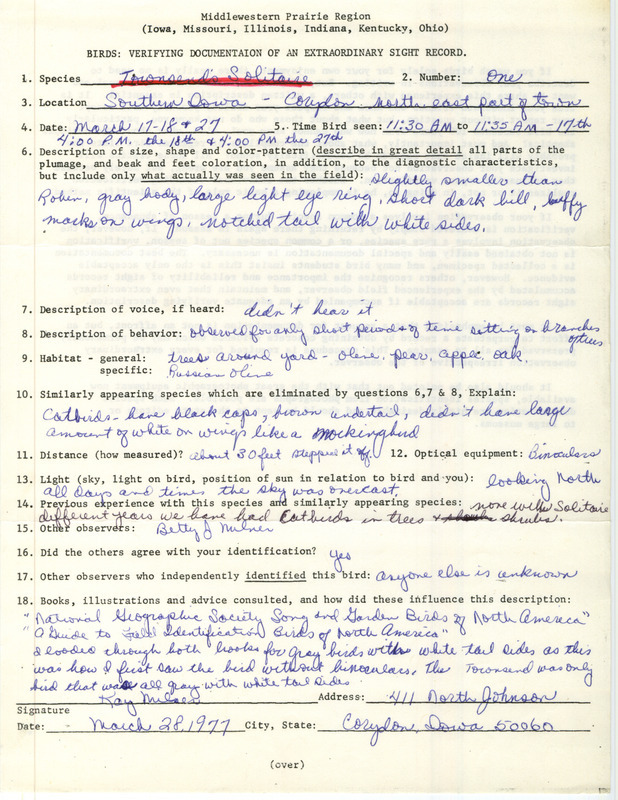 Middlewestern Prairie Region
(Iowa, Missouri, Illinois, Indiana, Kentucky, Ohio)
BIRDS: VERIFYING DOCUMENTAION OF AN EXTRAORDINARY SIGHT RECORD.
1. Species Townsend's Solitaire 2. Number: One
3. Location Southern Iowa - Corydon north east part of town
4. Date: March 17-18 & 27 5. Time Bird seen: 11:30 AM to 11:35 AM - 17th
4:00 P.M. the 18th & 4:00 PM the 27th
6. Description of size, shape and color-pattern (describe in great detail all parts of the
plumage, and beak and feet coloration, in addition, to the diagnostic characteristics,
but include only what actually was seen in the field): slightly smaller than
Robin, gray body, large light eye ring, short dark bill, buffy
marks on wings, notched tail with white sides.
7. Description of voice, if heard: didn't hear it
8. Description of behavior: observed for only short periods of time sitting on branches
of trees
9. Habitat - general: trees around yard - olive, pear, apple, oak,
specific: Russian Olive
10. Similarly appearing species which are eliminated by questions 6,7 & 8, Explain:
Catbirds - have black caps, brown undertail, didn't have large
amount of white on wings like a Mockingbird
11. Distance (how measured)? about 30 feet stepped it off. 12. Optical equipment: Binoculars
13. Light (sky, light on bird, position of sun in relation to bird and you): looking North
all days and times the sky was overcast.
14. Previous experience with this species and similarly appearing species: none with Solitaire
different years we have had Catbirds in trees & shrubs.
15. Other observers: Betty J Milner
16. Did the others agree with your identification? yes
17. Other observers who independently identified this bird: anyone else is unknown
18. Books, illustrations and advice consulted, and how did these influence this description:
"National Geographic Society Song and Garden Birds of North America"
"A Guide to Field Identification Birds of North America"
I looked through both books for gray birds with white tail sides as this
was how I first saw the bird without binoculars. The Townsend was only
bird that was all gray with white tail sides.
Kay Milner Address: 411 North Johnson
Signature
Date: March 28, 1977 City, State: Corydon, Iowa 50060
(over)